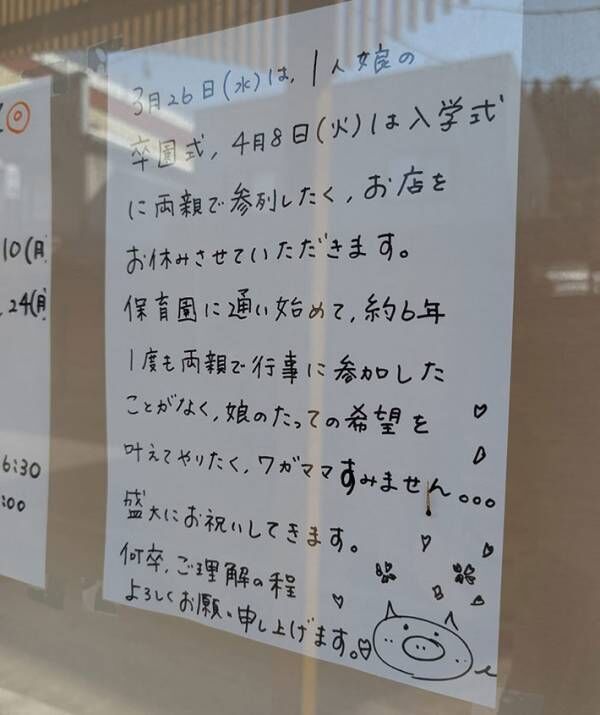 3月26日(水)は、1人娘の
卒園式、4月8日(火)は入学式
に両親で参列したく、お店を
お休みさせていただきます。
保育園に通い始めて、約6年
1度も両親で行事に参加した
ことがなく、娘のたっての希望を
叶えてやりたく、ワガママすみません...
盛大にお祝いしてきます。
何卒、ご理解の程
よろしくお願い申し上げます。
10(月)
24(月)
6:30
:00